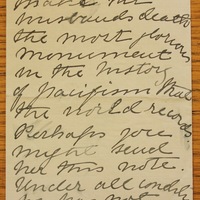 make her
husbands death
the most glorious
monument
in the history
of pacifism that
the world records
Perhaps you
might send
her this note.
Under all
not